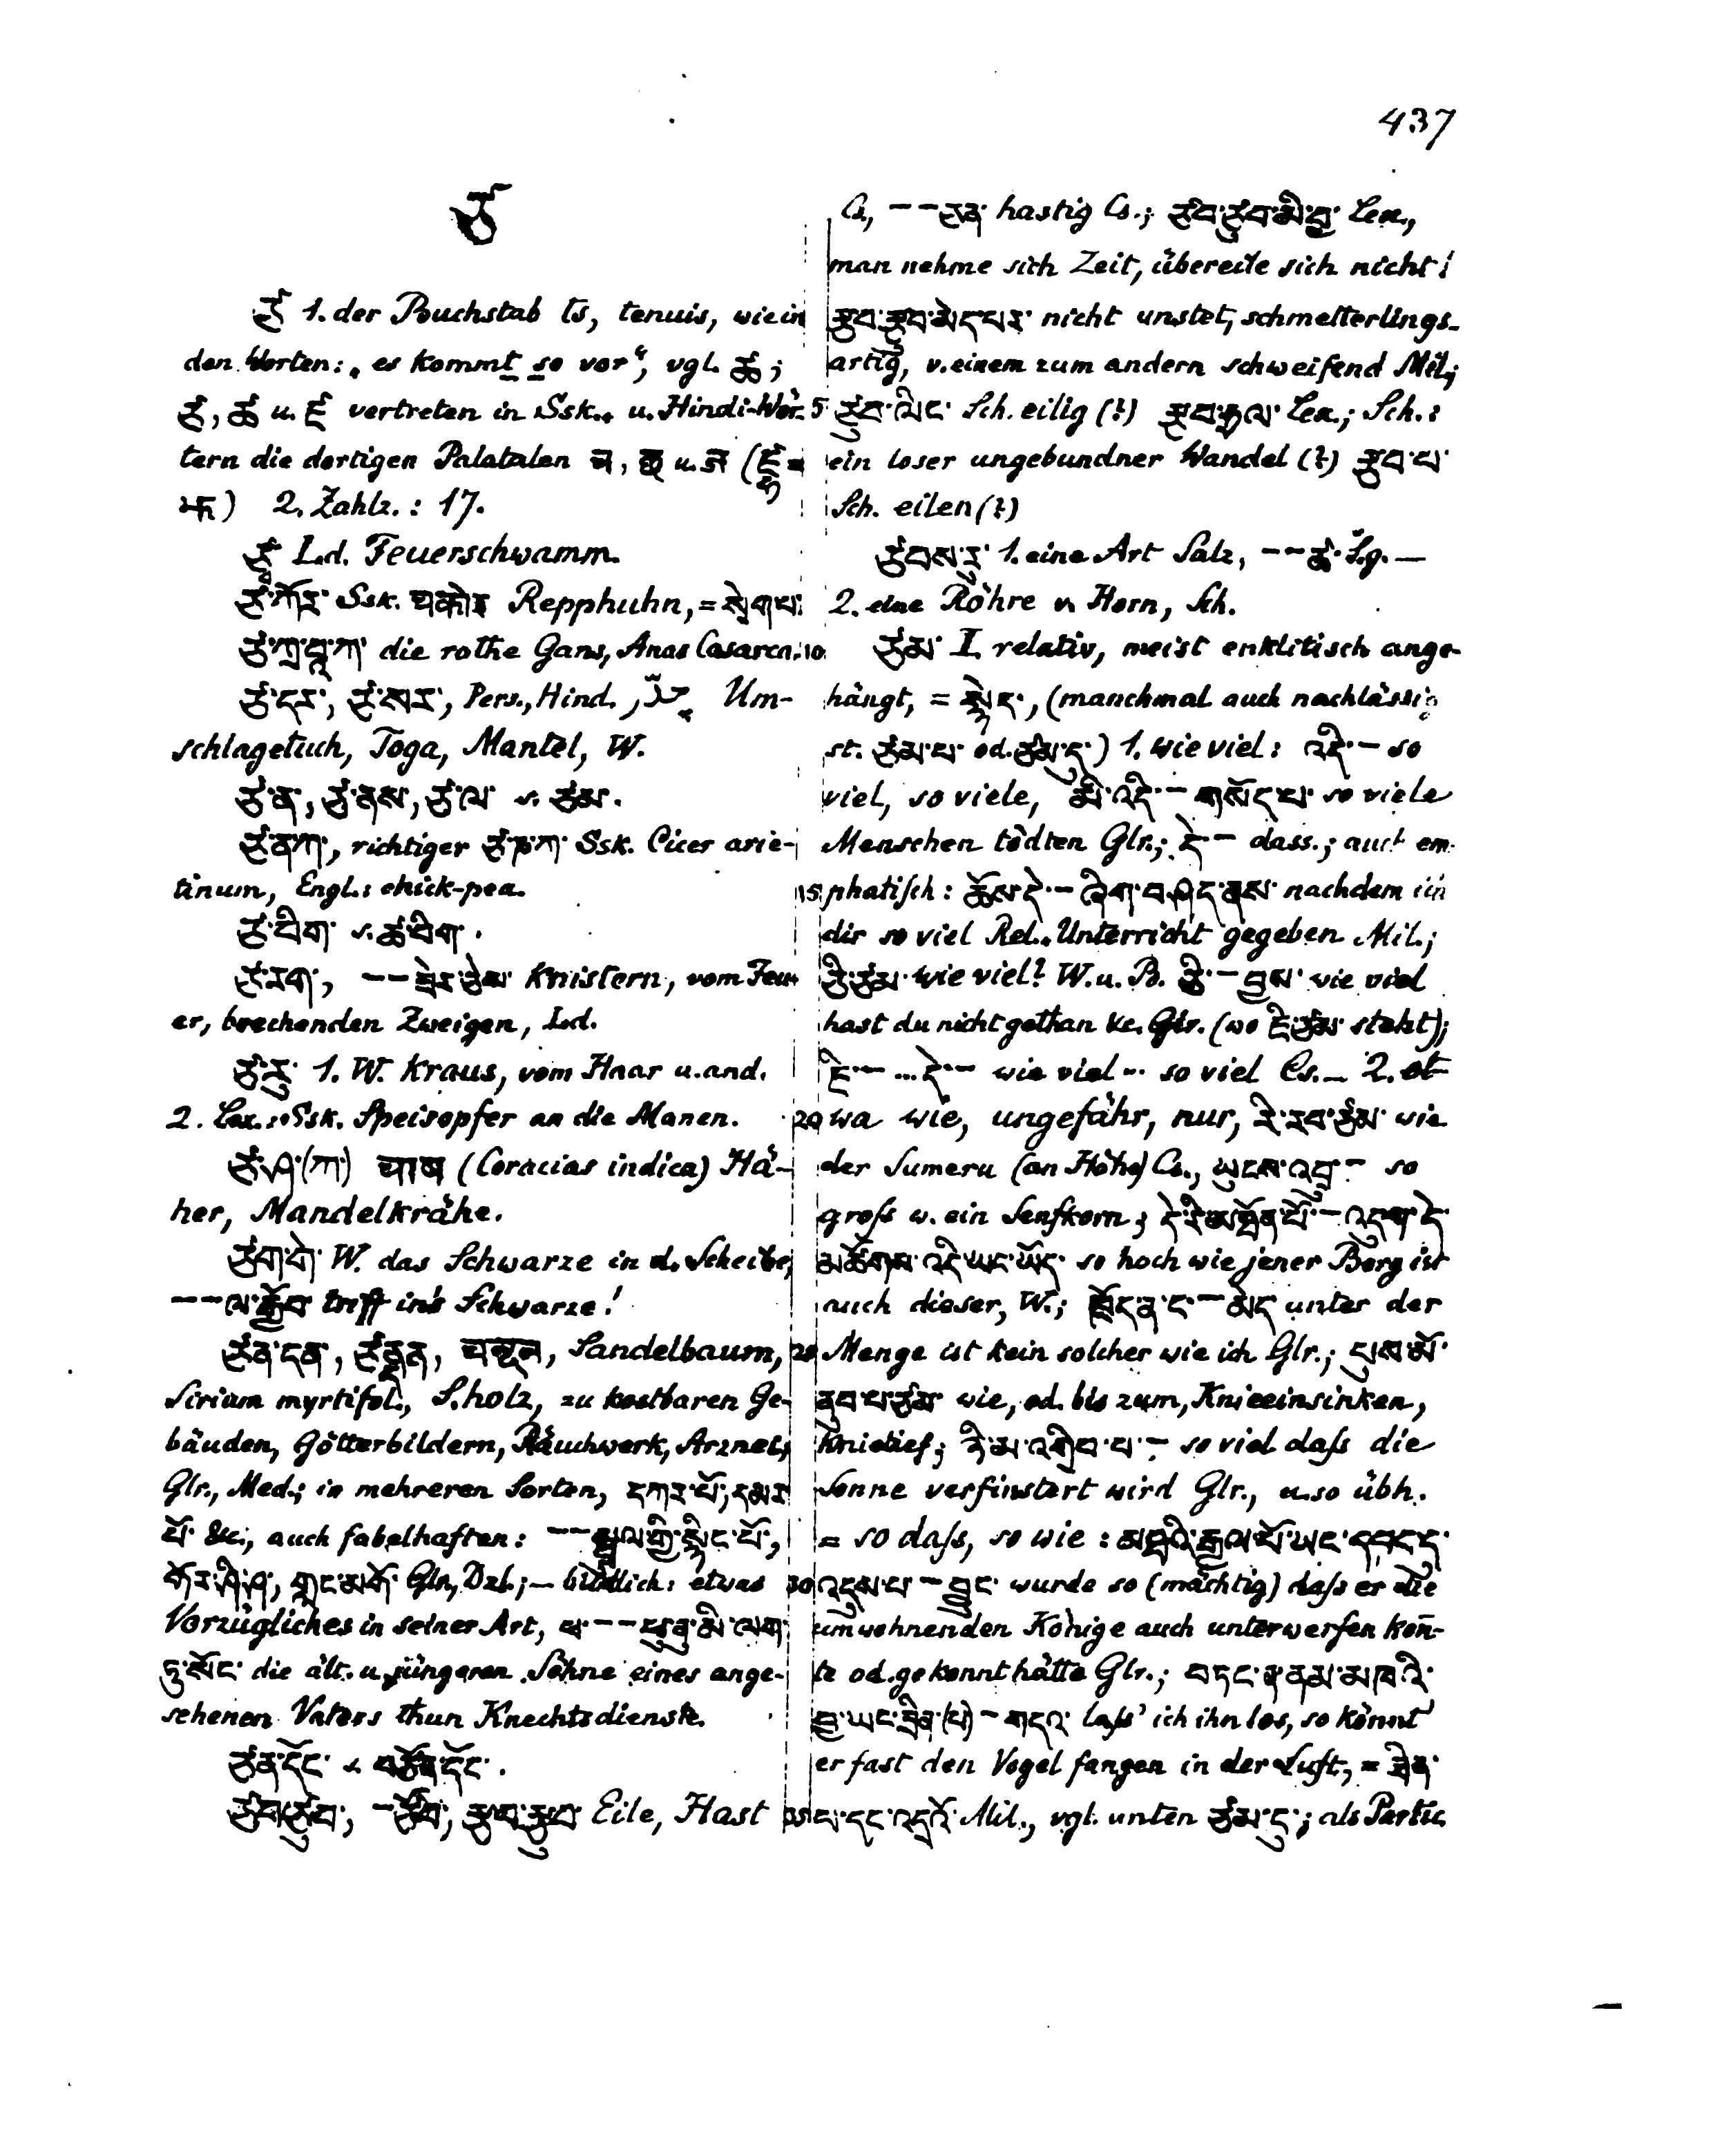 437
ཙ
ཙ 1. der Buchstab ts, tenuis, wie in
den Worten: „es kommt so vor“, vgl. ཚ;
ཙ, ཚ u. ཛ vertreten in Ssk.. u. Hindi-Wör-
tern die dortigen Palatalen च, छ u. ज (ཛྷ =
झ) 2. Zahlz.: 17.
Ld. Feuerschwamm.
ཙ་ཀོར་ Ssk. चकोर Repphuhn, = སྲེགཔ་
ཙ་ཀྲ་བཱ་ཀ་ die rothe Gans, Anas Casarca.
ཙ་དར་, ཙ་སར་, Pers., Hind. چادر Um-
schlagetuch, Toga, Mantel, W.
ཙ་ན་, ཙ་ནས་, ཙ་ལ་ s. ཙམ་.
ཙ་ནཀ་, richtiger ཙ་ཎ་ཀ་ Ssk. Cicer arie-
tinum, Engl.: chick-pea.
ཙ་རིག་ s. ཚ་རིག་.
ཙ་རག་, -- ཟེར་ Knistern, vom Feu-
er, brechenden Zweigen, Ld.
ཙ་རུ་ 1. W. kraus, vom Haar u. and.
2. Lex.: Ssk. Speisopfer an die Manen.
ཙ་ཥ་(ཀ་) चाष (Coracias indica) Hä-
her, Mandelkrähe.
ཙག་གེ་ W. das Schwarze in d. Scheibe,
--ལ་རྒྱོབ་ triff in's Schwarze!
ཙན་དན་, ཙནྡན་, चन्दन, Sandelbaum,
Sirium myrtifol., S.holz, zu kostbaren Ge-
bäuden, Götterbildern, Räuchwerk, Arznei,
Glr., Med.; in mehreren Sorten, དཀར་པོ་, དམར་
པོ་ &c., auch fabelhaften: --སྦྲུལ་གྱི་སྙིང་པོ་,
གོར་ཤི་ཥ་, གླང་མགོ་ Glr., Dzl.; - bildlich: etwas
Vorzügliches in seiner Art,
སོང་ die ält. u. jüngeren Söhne eines ange-
sehenen Vaters thun Knechtsdienste.
ཙན་དོང་ s. བཙོན་དོང་.
ཙབ་ཙུབ་, -ཙོབ་, Eile, Hast
Cs., --ཅན་ hastig Cs.; ཙབ་ཙུབ་མི་བྱ་ Lex.,
man nehme sich Zeit, übereile sich nicht!
རྩབ་རྩུབ་མེདཔར་ nicht unstet, schmetterlings-
artig, v. einem zum andern schweifend Mil.;
ཙུབ་ལིང་ Sch. eilig (?) Lex.; Sch.:
ein loser ungebundner Wandel (?) རྩུབ་པ་
Sch. eilen (?)
ཙབས་རུ་ 1. eine Art Salz, --ཚྭ་ Lg. —
2. eine Röhre v. Horn, Sch.
ཙམ་ I. relativ, meist enklitisch ange-
hängt, = སྙེད་, (manchmal auch nachlässig
st. ཙམ་པ་ od. ཙམ་དུ་) 1. wie viel: འདི་ – so
viel, so viele, མི་འདི་ – གསོད་པ་ so viele
Menschen tödten Glr.; དེ་ – dass.; auch em-
phatisch: ཆོས་དེ་ – ཞིག་བཤད་ནས་ nachdem ich
dir so viel Rel.. Unterricht gegeben Mil.;
ཅི་ཙམ་ wie viel? W. u. B. ཅི་ – བྱས་ wie viel
hast du nicht gethan &c. Glr. (wo ཇི་ཙམ་ steht);
ཇི་ – ... དེ་ – wie viel ... so viel Cs. – 2. et-
wa wie, ungefähr, nur, རི་རབ་ཙམ་ wie
der Sumeru (an Höhe) Cs., ཡུངས་འབྲུ་ – so
gross w. ein Senfkorn; དེ་རི་མཐོན་པོ་ – འདུག་དེ་
མཚོགས་འདི་ཡང་ཡོད་ so hoch wie jener Berg ist
auch dieser, W.; ཁྲོད་ན་ང་ – མེད་ unter der
Menge ist kein solcher wie ich Glr.; པུས་མོ་
ནུབ་པ་ཙམ་ wie, od. bis zum, Knieeinsinken,
knietief; ཉི་མ་འགྲིབ་པ་ – so viel dass die
Sonne verfinstert wird Glr., u. so übh.
= so dass, so wie: མཐའི་རྒྱལ་པོ་ཡང་དབང་དུ་
འདུས་པ་ – བྱུང་ wurde so (mächtig) dass er die
umwohnenden Könige auch unterwerfen kon̄-
te od. gekonnt hätte Glr.; བཏང་ན་ནམ་མཁའི་
བྱ་ཡང་ཟིན་(པ)་ – གདའ་ lass' ich ihn los, so könnt'
er fast den Vogel fangen in der Luft, = ཟིན་
པ་དང་འདྲའོ་ Mil., vgl. unten ཙམ་དུ་; als Partic.